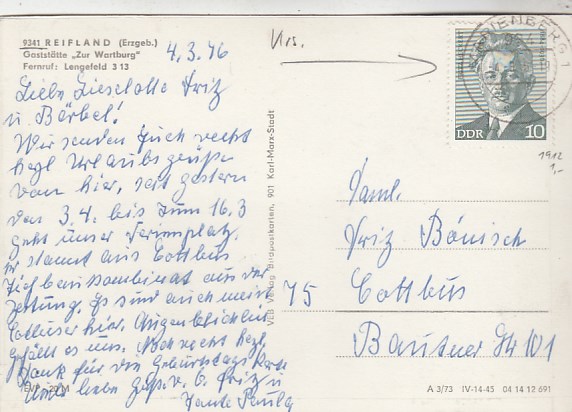 9341 REIFLAND (Erzgeb.)
Gaststätte „Zur Wartburg"
Fernruf: Lengefeld 3 13
4.3.76
Liebe Lieselotte Fritz
u Bärbel!
Wir senden Euch recht
hezl Urlaubsgrüße
von hier, seit gestern
den 3.4. bis zum 16.3
geht unser Ferienplatz.
Er stammt aus Cottbus
Tiefbaukombinat aus der
Zeitung. Es sind auch meist
Cottbuser hier. Augenblicklich
gefällt es uns. Noch recht hezl.
Dank für die Geburtstagskarte
Viele liebe Grüße v. O. Fritz u
Tante Paula
VEB Verlag Bildpostkarten, 901 Karl-Marx-Stadt
DDR 10
1912
1,-
Faml.
Fritz Bönisch
75 Cottbus
Bautzner Str 101
A 3/73 IV-14-45 04 14 12 691